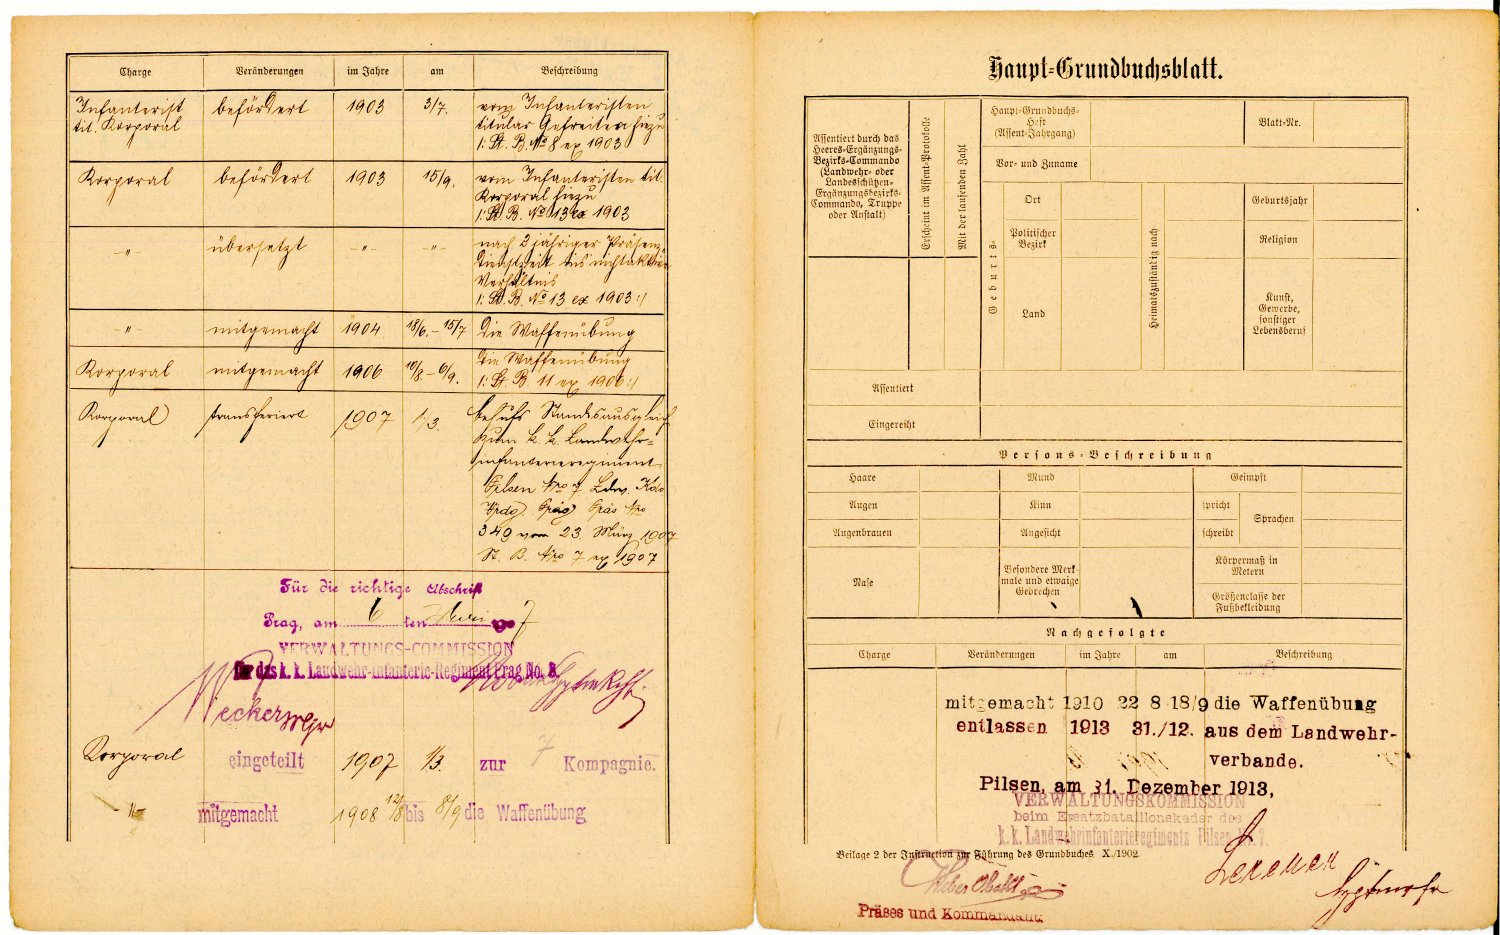 Charge Veränderungen im Jahre am Beschreibung
Infanterist befördert 1903 3/7. vom Infanteristen
tit. Korporal titular Gefreiten hiezu
/: St. B. No 8 ex 1903
Korporal befördert 1903 15/9. vom Infanteristen tit.
Korporal hiezu
/: St. B. No 13 ex 1903
-"- übersetzt -"- -"- nach 3 jähriger Präsenz-
dienstzeit ins nichtaktive
Verhältnis
/: St. B. No 13 ex 1903 :/
-"- mitgemacht 1904 18/6. – 15/7 die Waffenübung
Korporal mitgemacht 1906 10/8. – 6/9. die Waffenübung
/: St. B. 11 ex 1906 :/
Korporal transferiert 1907 1/3. behufs Standesausgleich
zum k. k. Landwehr-
infanterieregiment
Pilsen Nro 7 Ldw. Kdo
Prag Präs Nro
349 vom 23. März 1907
St. B. Nro 7 ex 1907
Für die richtige Abschrift
Prag, am 6 ten 7
VERWALTUNGS-COMMISSION
für das k. k. Landwehr-Infanterie-Regiment Prag No. 8.
Korporal eingeteilt 1907 1/3. zur 7 Kompagnie.
-"- mitgemacht 1908 12/8 bis 8/9 die Waffenübung
Haupt-Grundbuchsblatt.
Assentiert durch das
Heeres-Ergänzungs-
Bezirks-Commando
(Landwehr- oder
Landesschützen-
Ergänzungsbezirks-
Commando, Truppe
oder Anstalt)
Erscheint im Assent-Protokolle
Mit der laufenden Zahl
Haupt-Grundbuchs-
Heft
(Assent-Jahrgang)
Blatt-Nr.
Vor- und Zuname
Geburts-
Ort
Politischer
Bezirk
Land
Heimatszuständig nach
Geburtsjahr
Religion
Kunst,
Gewerbe,
sonstiger
Lebensberuf
Assentiert
Eingereiht
Persons-Beschreibung
Haare Mund Geimpft
Augen Kinn spricht Sprachen
Augenbrauen Angesicht schreibt
Nase Besondere Merk-
male und etwaige
Gebrechen
Körpermaß in
Metern
Größenclasse der
Fußbekleidung
Nachgefolgte
Charge Veränderungen im Jahre am Beschreibung
mitgemacht 1910 22 8 18/9 die Waffenübung
entlassen 1913 31./12. aus dem Landwehr-
verbande.
Pilsen, am 31. Dezember 1913,
VERWALTUNGSKOMMISSION
beim Ersatzbataillonskader des
k. k. Landwehrinfanterieregiments Pilsen Nr. 7.
Beilage 2 der Instruction zur Führung des Grundbuches X./1902.
Präses und Kommandant